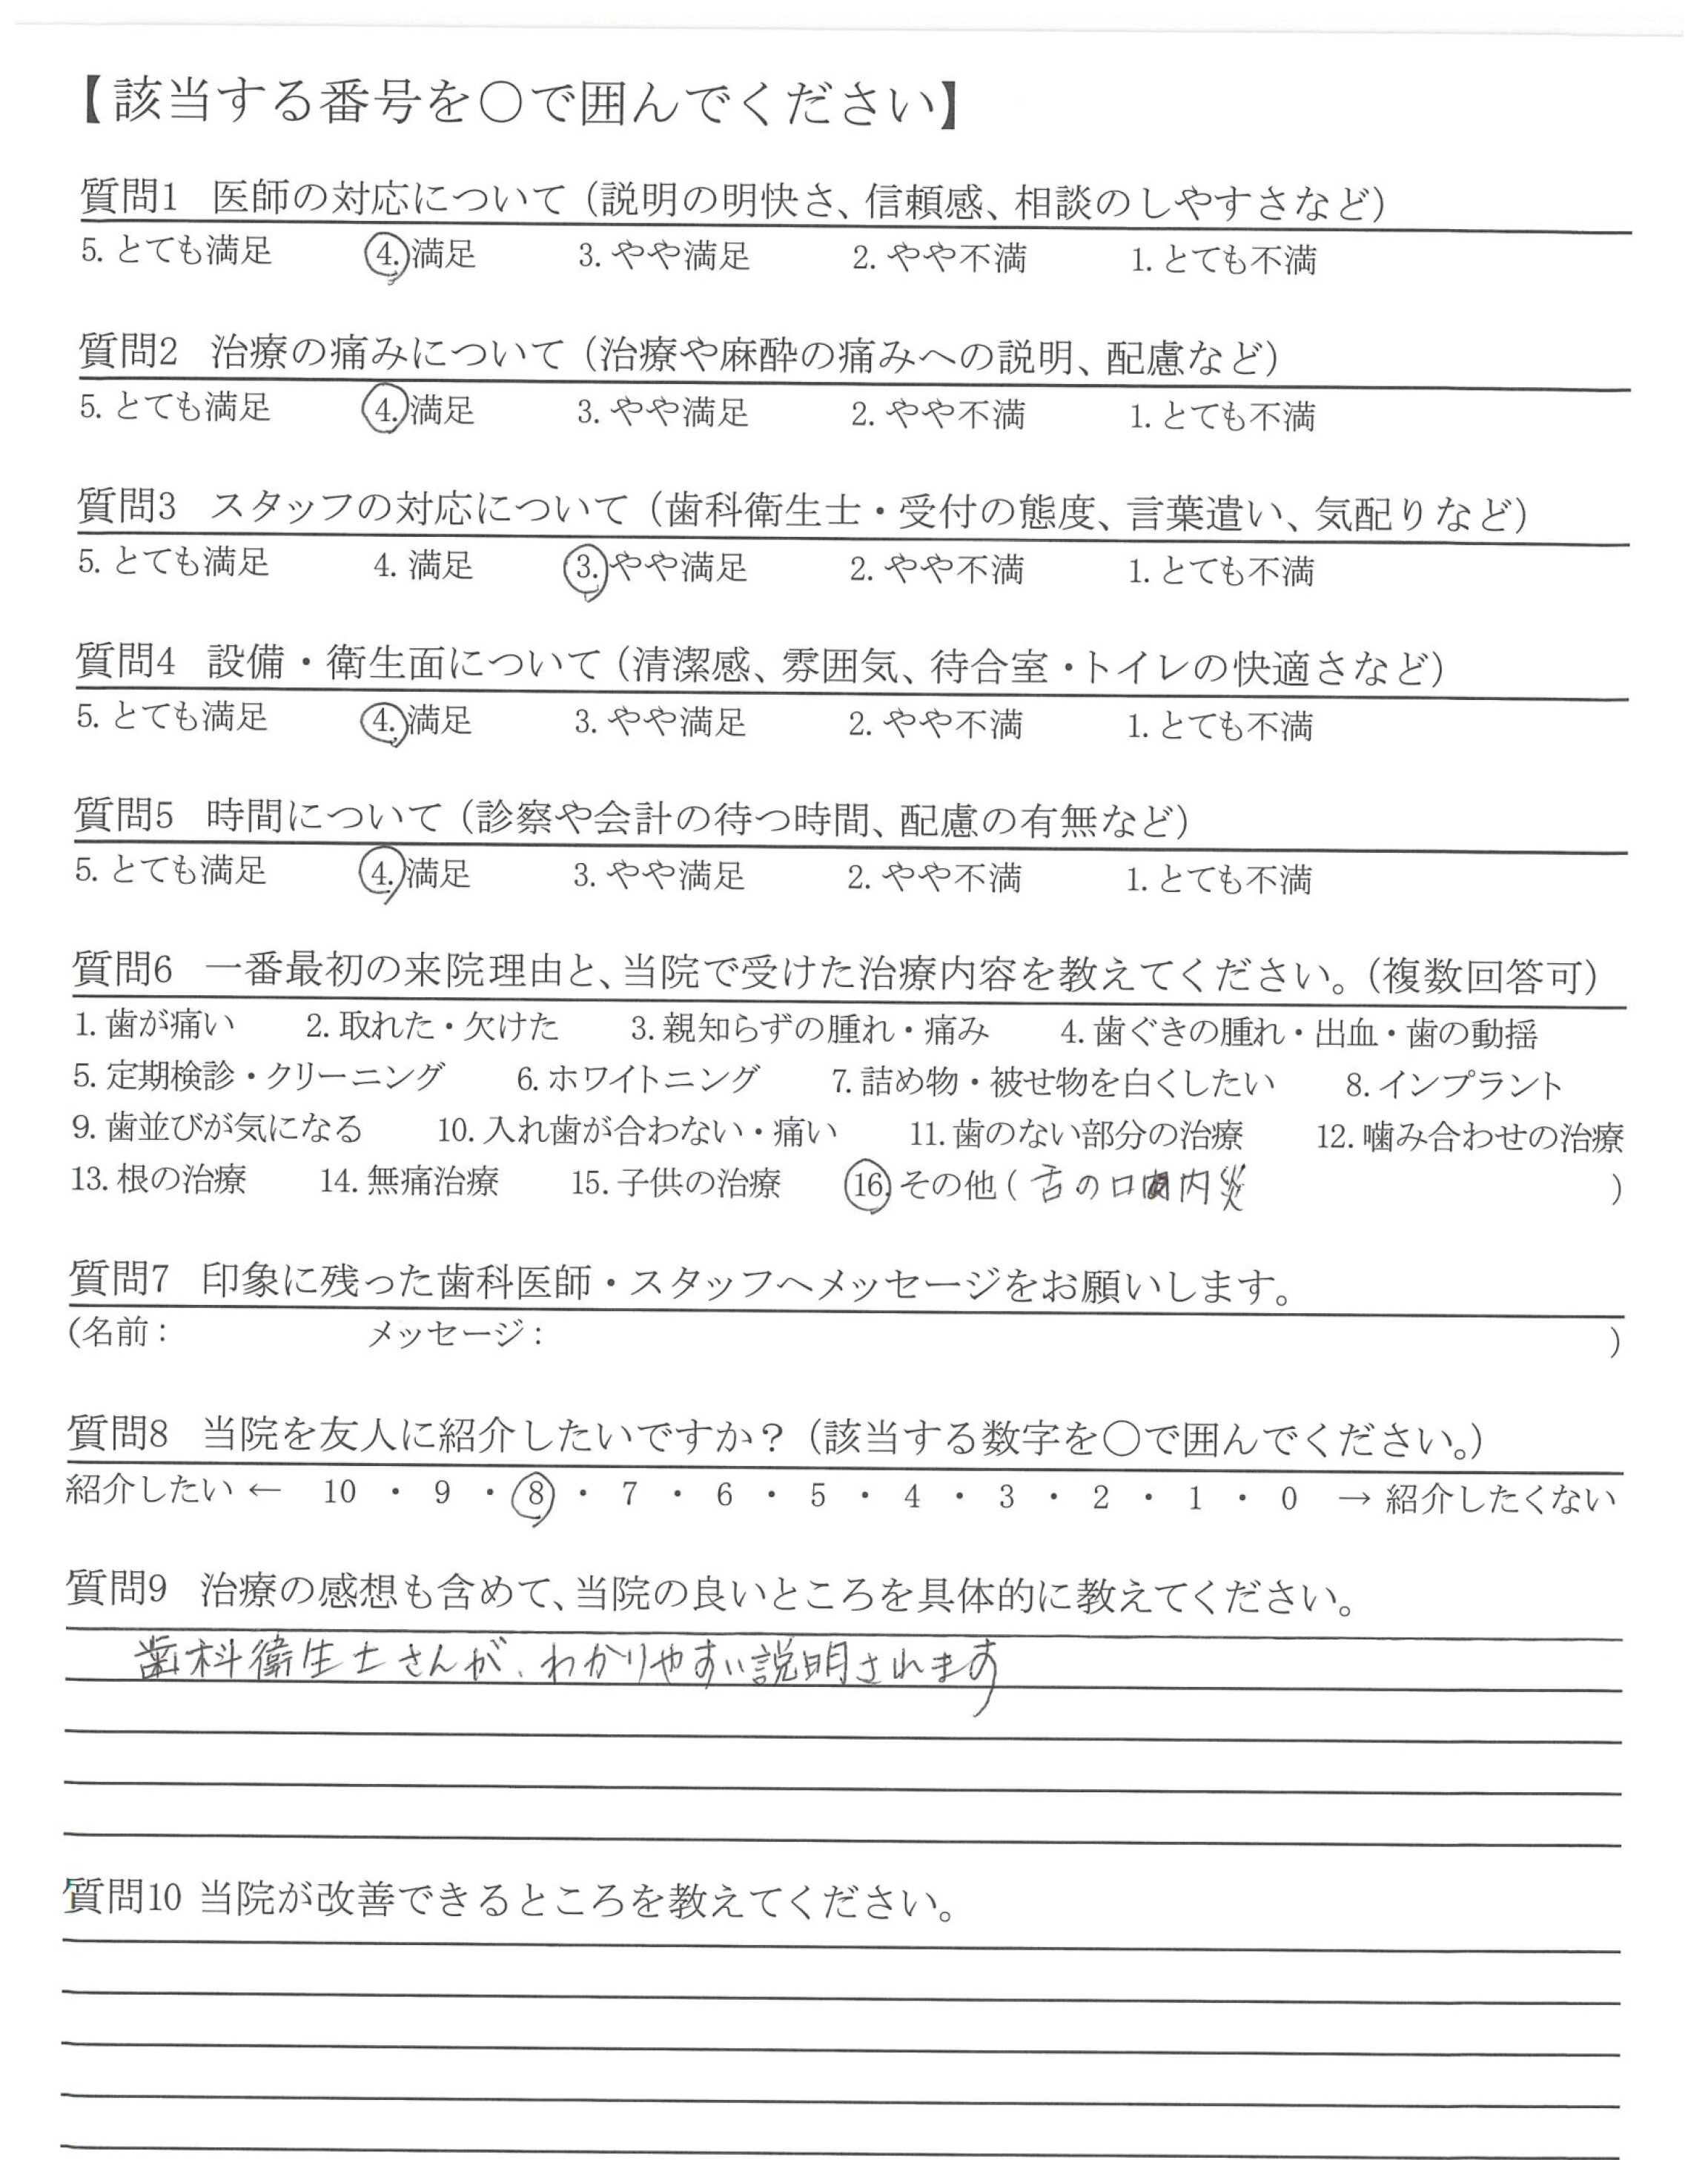 【該当する番号を○で囲んでください】
質問1 医師の対応について（説明の明快さ、信頼感、相談のしやすさなど）
5. とても満足 4. 満足 3. やや満足 2. やや不満 1. とても不満
質問2 治療の痛みについて（治療や麻酔の痛みへの説明、配慮など）
5. とても満足 4. 満足 3. やや満足 2. やや不満 1. とても不満
質問3 スタッフの対応について（歯科衛生士・受付の態度、言葉遣い、気配りなど）
5. とても満足 4. 満足 3. やや満足 2. やや不満 1. とても不満
質問4 設備・衛生面について（清潔感、雰囲気、待合室・トイレの快適さなど）
5. とても満足 4. 満足 3. やや満足 2. やや不満 1. とても不満
質問5 時間について（診察や会計の待つ時間、配慮の有無など）
5. とても満足 4. 満足 3. やや満足 2. やや不満 1. とても不満
質問6 一番最初の来院理由と、当院で受けた治療内容を教えてください。（複数回答可）
1. 歯が痛い 2. 取れた・欠けた 3. 親知らずの腫れ・痛み 4. 歯ぐきの腫れ・出血・歯の動揺
5. 定期検診・クリーニング 6. ホワイトニング 7. 詰め物・被せ物を白くしたい 8. インプラント
9. 歯並びが気になる 10. 入れ歯が合わない・痛い 11. 歯のない部分の治療 12. 噛み合わせの治療
13. 根の治療 14. 無痛治療 15. 子供の治療 16. その他（舌の口内炎）
質問7 印象に残った歯科医師・スタッフへメッセージをお願いします。
（名前： メッセージ： ）
質問8 当院を友人に紹介したいですか？（該当する数字を○で囲んでください。）
紹介したい ← 10 ・ 9 ・ 8 ・ 7 ・ 6 ・ 5 ・ 4 ・ 3 ・ 2 ・ 1 ・ 0 → 紹介したくない
質問9 治療の感想も含めて、当院の良いところを具体的に教えてください。
歯科衛生士さんが、わかりやすい説明されます
質問10 当院が改善できるところを教えてください。